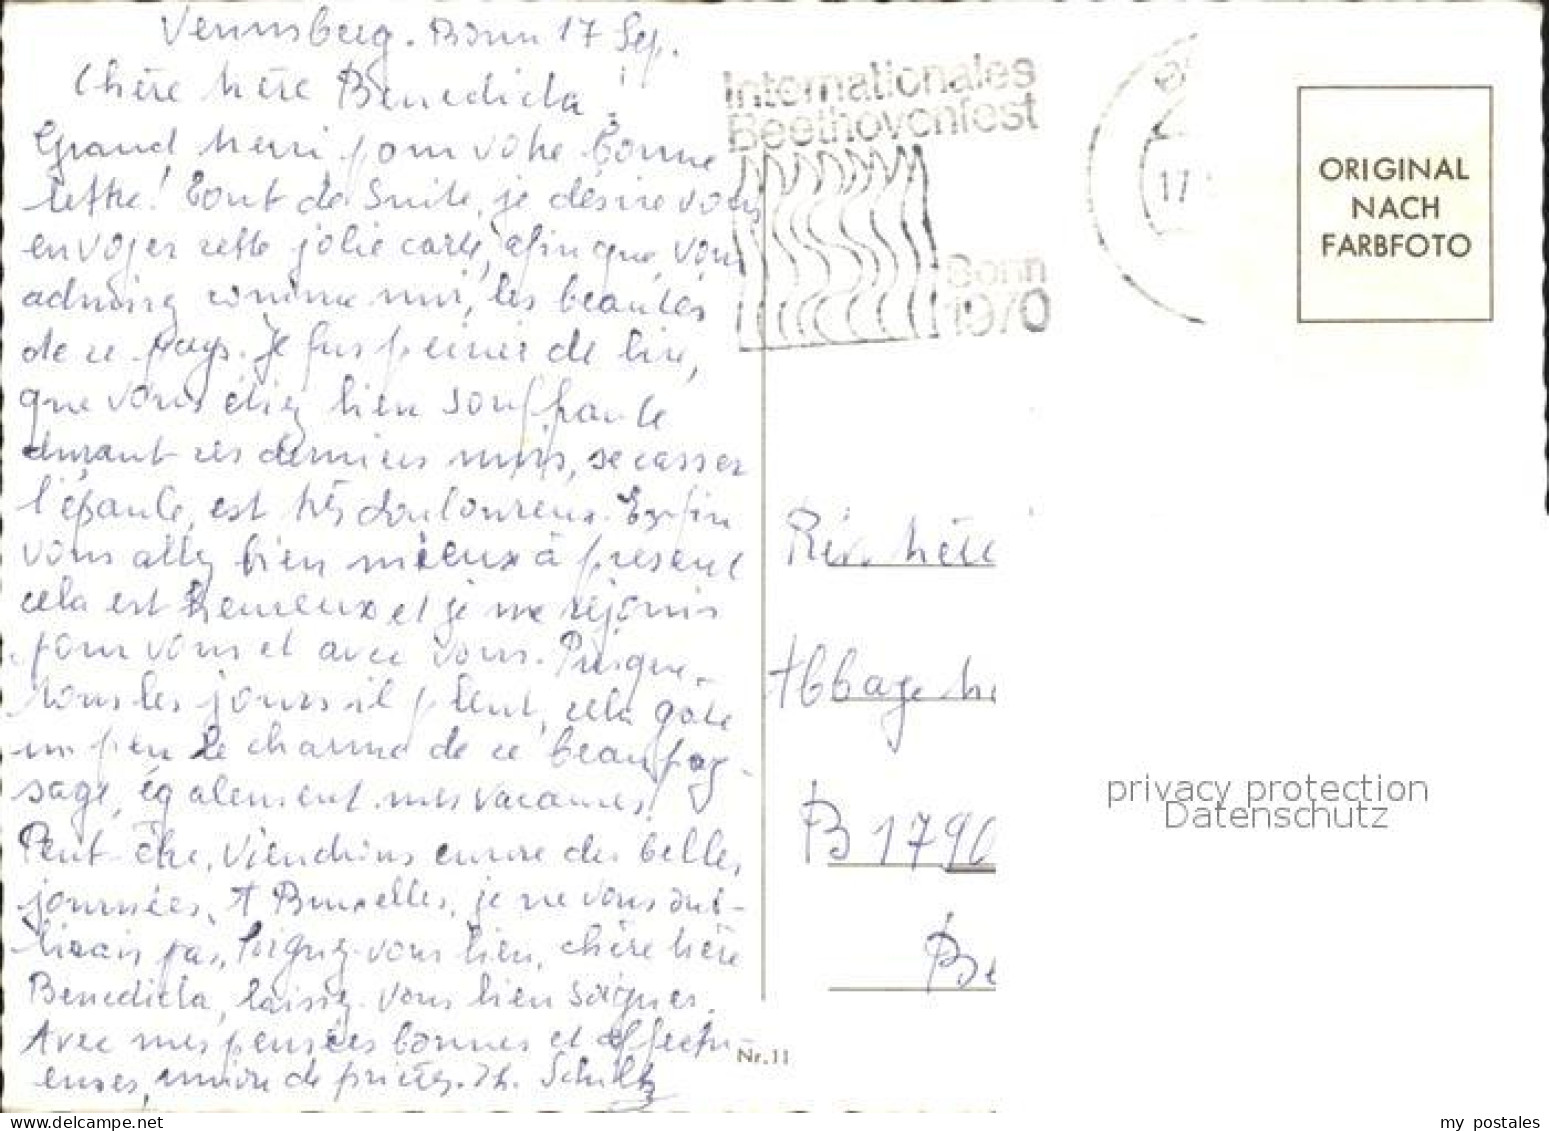 Vennsberg. Bonn 17 Sep.
Chère Mère Benedicta!
Grand merci pour votre bonne
lettre! Tout de suite, je désire vous
envoyer cette jolie carte, afin que vous
admirez comme moi, les beautés
de ce pays. Je fus peinée de lire,
que vous étiez bien souffrante
durant ces derniers mois, se casser
l'épaule, est très douloureux. Enfin
vous allez bien mieux à présent
cela est heureux et je me réjouis
pour vous et avec vous. Puisque
tous les jours il pleut, cela gâte
un peu le charme de ce beau pay-
sage, également mes vacances!
Peut-être, viendrons encore des belles
journées. A Bruxelles, je ne vous oub-
lierais pas. Soignez-vous bien, chère Mère
Benedicta, laissez-vous bien soigner.
Avec mes pensées bonnes et affectu-
euses, union de prières. Th. Schiltz
Internationales
Beethovenfest
Bonn
1970
17
ORIGINAL
NACH
FARBFOTO
Rév. Mère
Abbaye
B 1790
Be
privacy protection
Datenschutz
Nr. 11
www.delcampe.net
my postales